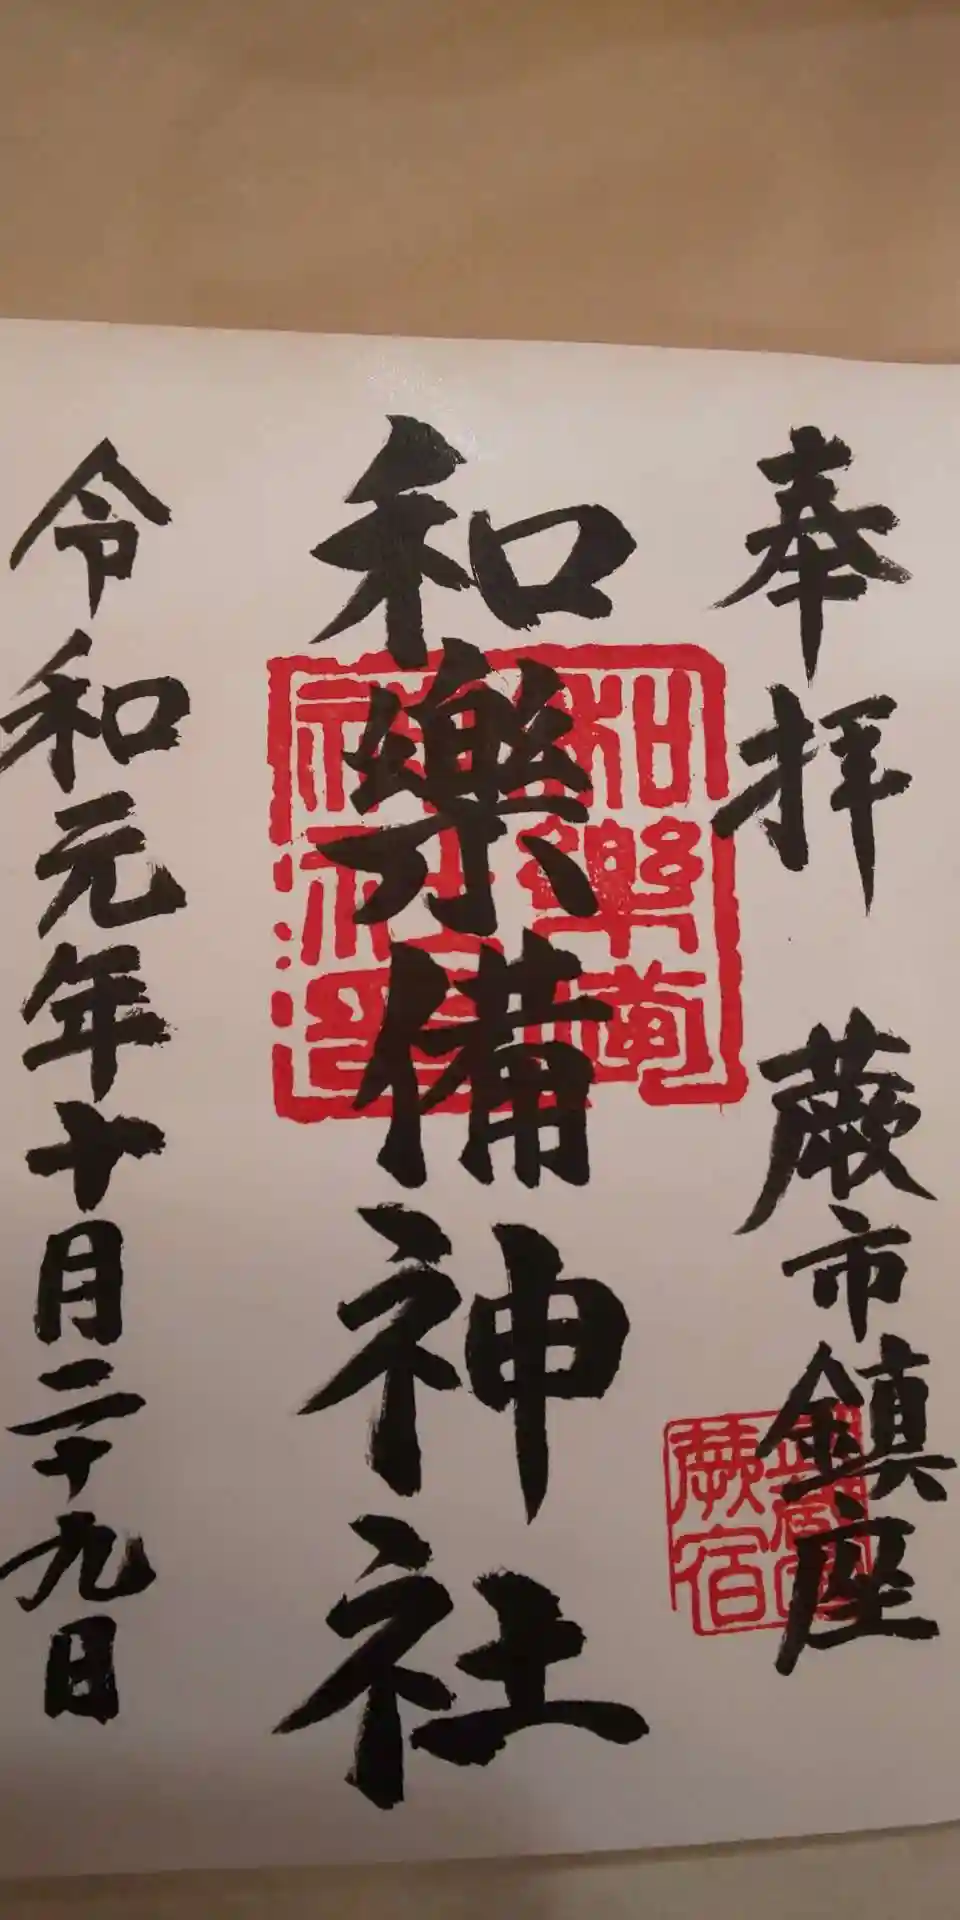 奉拝 蕨市鎮座
和樂備神社
令和元年十月二十九日
和樂備神社印
蕨宿